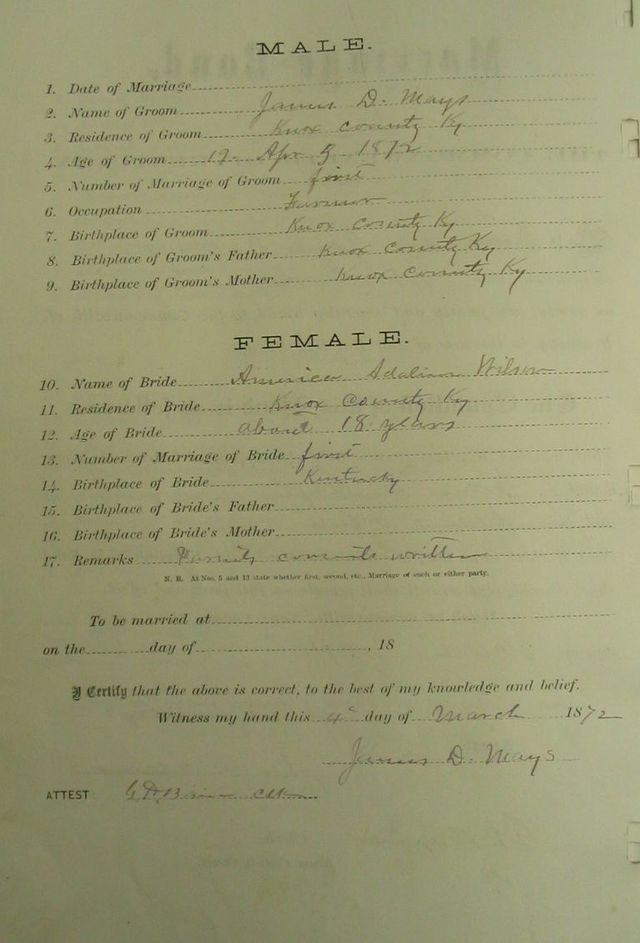 MALE.
1. Date of Marriage
2. Name of Groom James D. Mays
3. Residence of Groom Knox County Ky
4. Age of Groom 17- Apr 5 1872
5. Number of Marriage of Groom first
6. Occupation Farmer
7. Birthplace of Groom Knox County Ky
8. Birthplace of Groom's Father Knox County Ky
9. Birthplace of Groom's Mother Knox County Ky
FEMALE.
10. Name of Bride America Adaline Wilson
11. Residence of Bride Knox County Ky
12. Age of Bride about 18 years
13. Number of Marriage of Bride first
14. Birthplace of Bride Kentucky
15. Birthplace of Bride's Father
16. Birthplace of Bride's Mother
17. Remarks written
N. B. At Nos. 5 and 13 state whether first, second, etc., Marriage of each or either party.
To be married at
on the day of , 18
I Certify that the above is correct, to the best of my knowledge and belief.
Witness my hand this 4th day of March 1872
James D. Mays
ATTEST: Clk